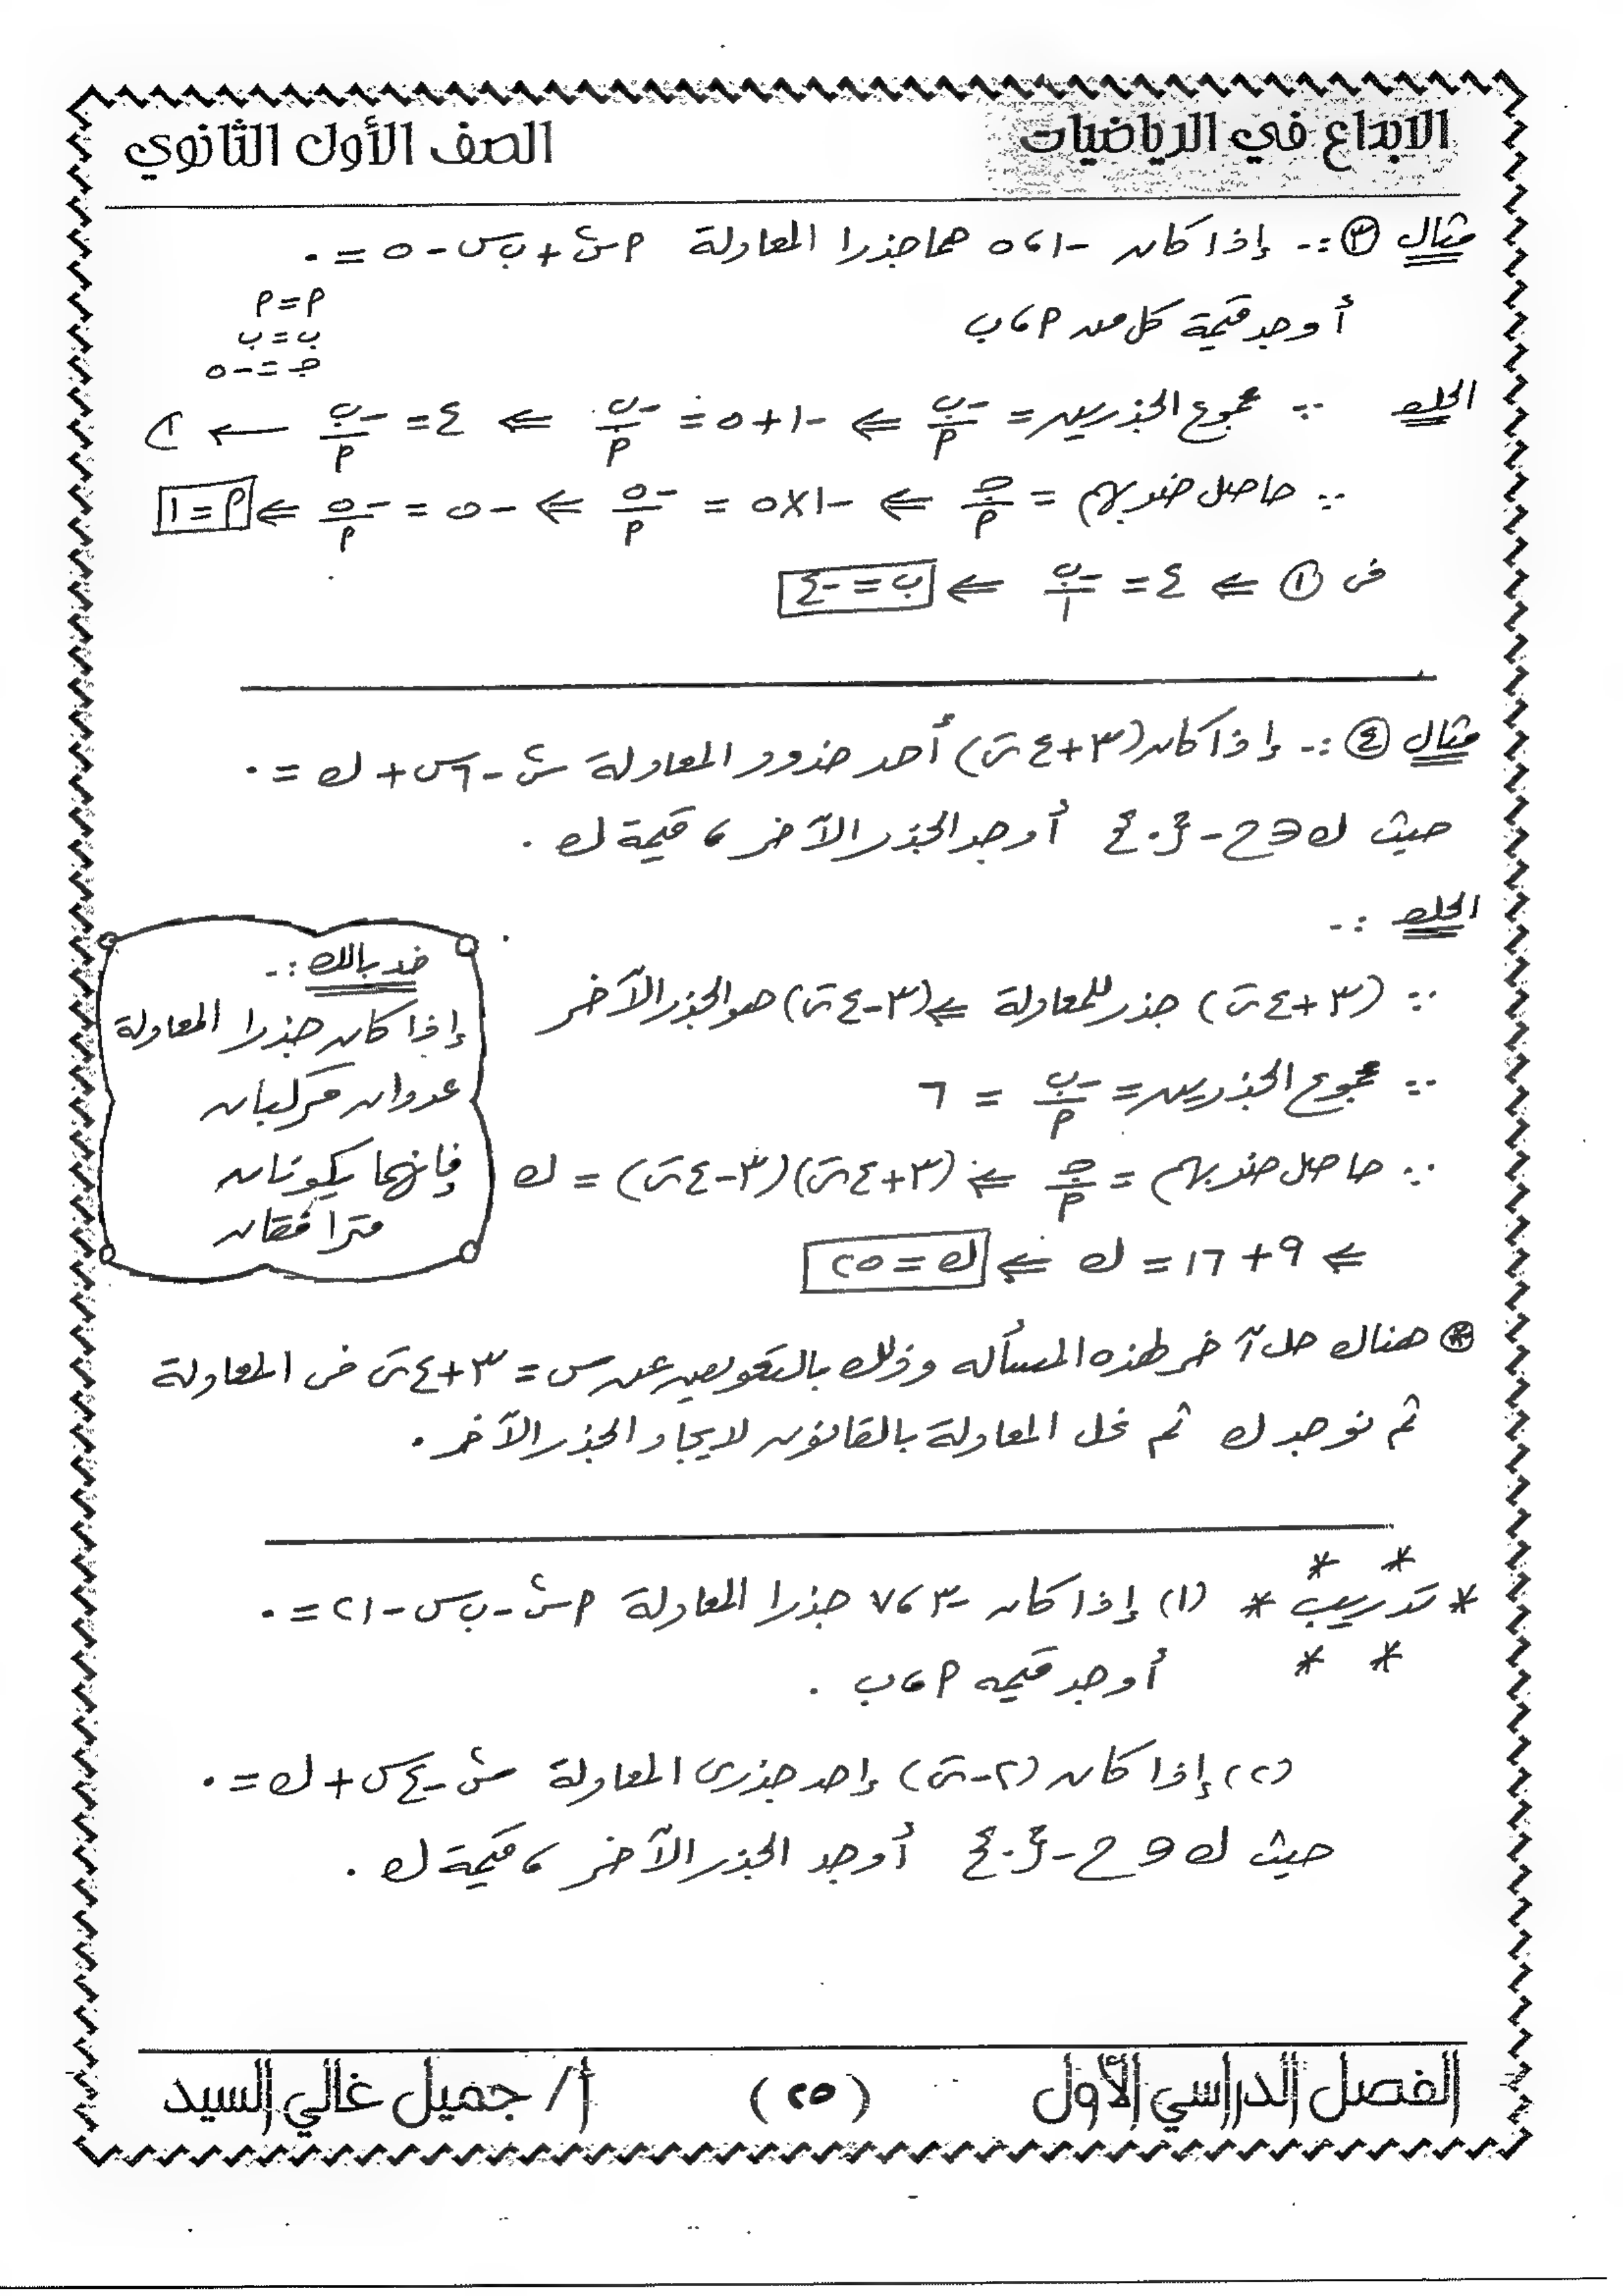 الابداع في الرياضيات
الصف الأول الثانوي
مثال (٣) :- إذا كان -١، ٥ هما جذرا المعادلة ٢س٢ + ب س - ٥ = ٠
أوجد قيمة كل من ٢، ب
٢ = ٢
ب = ب
جـ = -٥
الحل ∵ مجموع الجذرين = -ب/٢ ⇐ -١ + ٥ = -ب/٢ ⇐ ٤ = -ب/٢ ← (١)
∵ حاصل ضربهم = جـ/٢ ⇐ -١×٥ = -٥/٢ ⇐ -٥ = -٥/٢ ⇐ ٢ = ١
فى (١) ⇐ ٤ = -ب/١ ⇐ ب = -٤
مثال (٤) :- إذا كان (٣+٤ت) أحد جذور المعادلة س٢ - ٦س + ك = ٠
حيث ك ∈ ح - {٠} أوجد الجذر الآخر، قيمة ك .
الحل :-
∵ (٣+٤ت) جذر للمعادلة ⇐ (٣-٤ت) هو الجذر الآخر
∵ مجموع الجذرين = -ب/٢ = ٦
∵ حاصل ضربهم = جـ/٢ ⇐ (٣+٤ت)(٣-٤ت) = ك
⇐ ٩ + ١٦ = ك ⇐ ك = ٢٥
خد بالك :-
إذا كان جذرا المعادلة
عددان مركبان
فإنهما يكونان
مترافقان
* هناك حل آخر لهذه المسأله وذلك بالتعويض عن س = ٣+٤ت فى المعادلة
ثم نوجد ك ثم نحل المعادلة بالقانون لايجاد الجذر الآخر .
* تدريب * (١) إذا كان -٣، ٧ جذرا المعادلة ٢س٢ - ب س - ٢١ = ٠
أوجد قيمه ٢، ب .
(٢) إذا كان (٢-ت) إحد جذرى المعادلة س٢ - ٤س + ك = ٠
حيث ك ∈ ح - {٠} أوجد الجذر الآخر، قيمة ك .
الفصل الدراسي الأول
(٢٥)
أ/ جميل غالي السيد